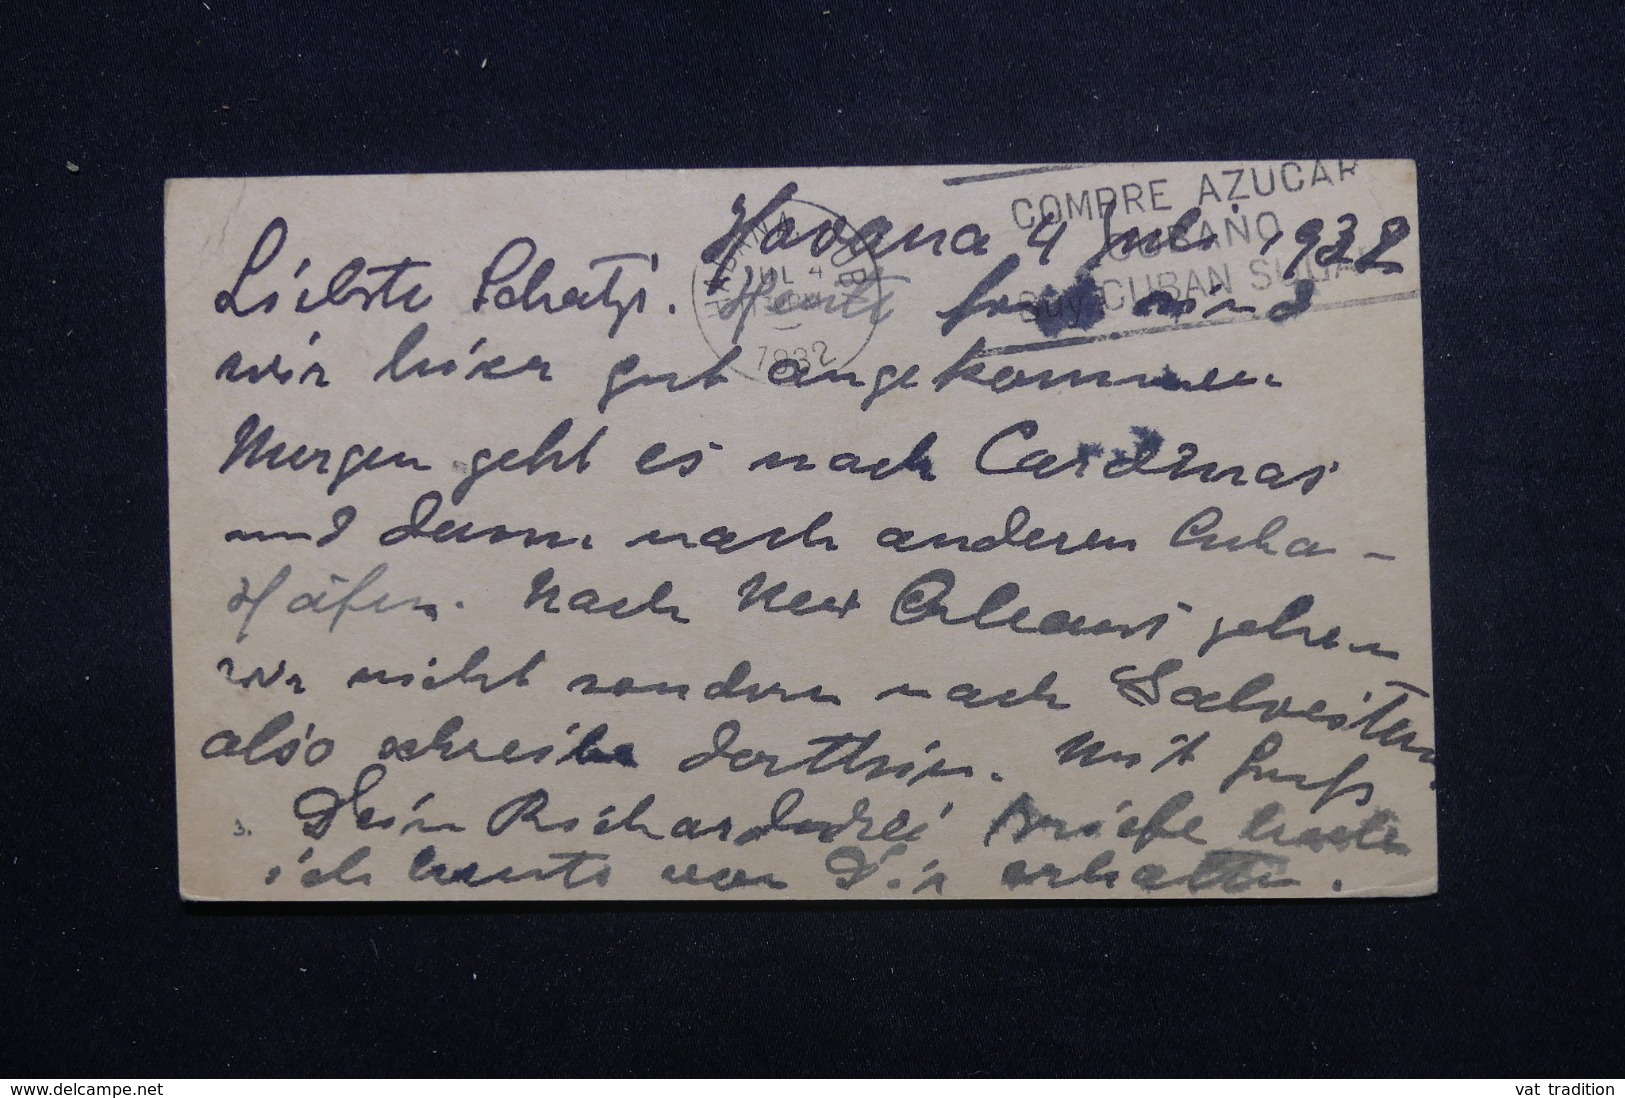 COMPRE AZUCAR
CUBANO
Buy CUBAN SUGAR
HABANA, CUBA
JUL 4
1932
Havana 4 Juli 1932
Liebste Schatzi. Heute früh sind
wir hier gut angekommen
Morgen geht es nach Cardinas
und dann nach anderen Cuba-
Häfen. Nach New Orleans gehen
wir nicht sondern nach Galvestton
also schreibe dorthin. Mit Gruß
3. Dein Richard Briefe habe
ich heute von Dir erhalten.
www.delcampe.net
vat_tradition